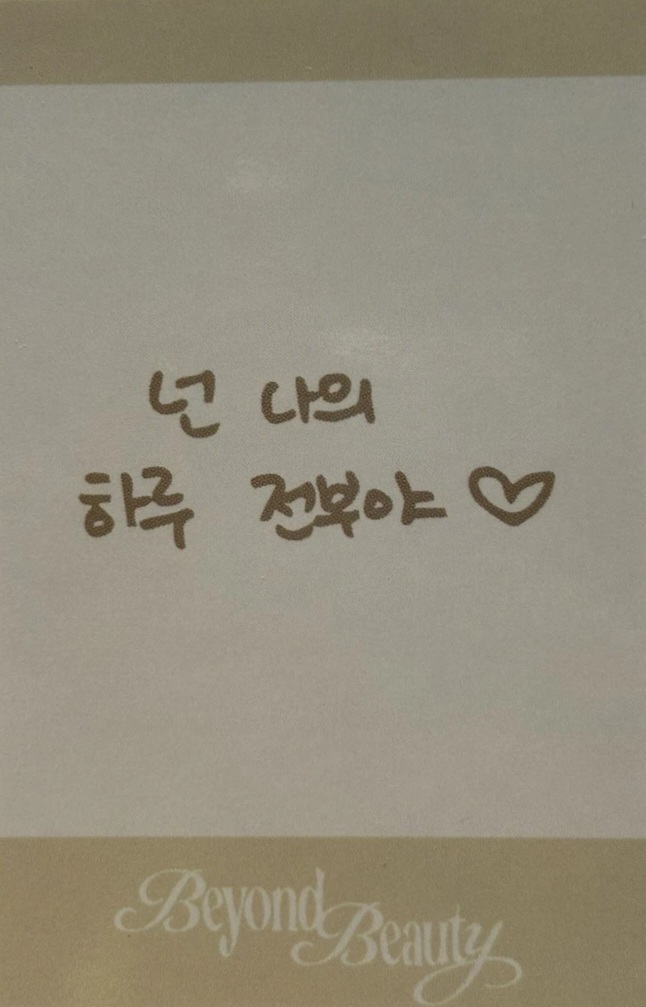 넌 나의
하루 전부야 ♡
Beyond
Beauty